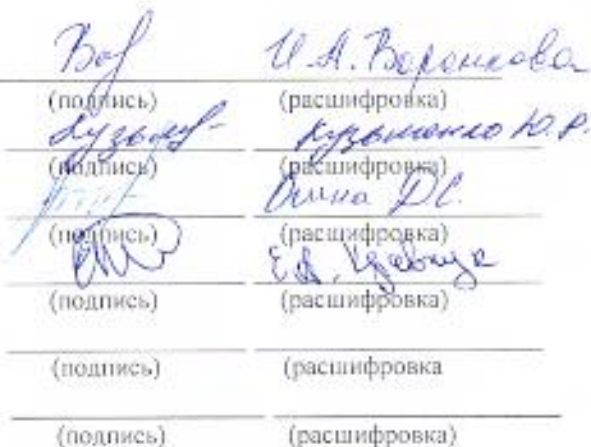 И.А. Воронкова
(подпись) (расшифровка)
Кузьменко Ю.Р.
(подпись) (расшифровка)
Д.С.
(подпись) (расшифровка)
Е.А.
(подпись) (расшифровка)
(подпись) (расшифровка
(подпись) (расшифровка)